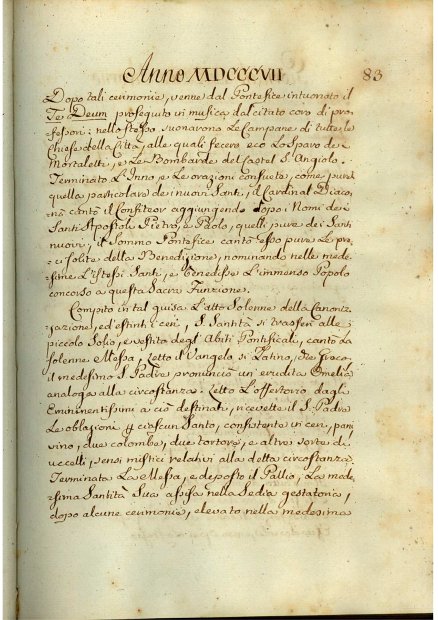 Anno MDCCCVII 83
Dopo tali cerimonie, venne dal Pontefice intuonato il
Te Deum proseguito in musica dal citato coro di pro-
fessori: nello stesso suonavono le Campane di tutte le
Chiese della Città, alle quali fecero eco lo sparo de
Mortaletti, e le Bombarde del Castel S. Angiolo.
Terminato l'Inno, e le orazioni consuete, come pure
quella particolare de' nuovi Santi, il Cardinal Diaco-
no cantò il Confiteor aggiungendo dopo i Nomi dei
Santi Apostoli Pietro, e Paolo, quelli pure dei Santi
nuovi, il Sommo Pontefice cantò esso pure le pre-
ci solite della Benedizione, nominando nelle mede-
sime l'istessi Santi, e benedisse l'immenso Popolo
concorso a questa Sacra Funzione.
Compito in tal guisa l'atto solenne della Canoniz-
zazione, ed estinti i ceri, S. Santità si trasferì alle
piccolo Solio, e vestito degli Abiti Pontificali, cantò la
solenne Messa, letto il Vangelo sì Latino, che Greco,
il medesimo S. Padre pronunciò un erudita Omelia
analoga alla circostanza. Letto l'offertorio dagli
Eminentissimi a ciò destinati, ricevette il S. Padre
le oblazioni p ciascun Santo, consistente in ceri, pani
vino, due colombe, due tortore, e altre sorte di
uccelli, sensi mistici relativi alla detta circostanza.
Terminata la Messa, e deposto il Pallio, la mede-
sima Santità Sua assisa nella Sedia gestatoria,
dopo alcune cerimonie, elevato nella medesima